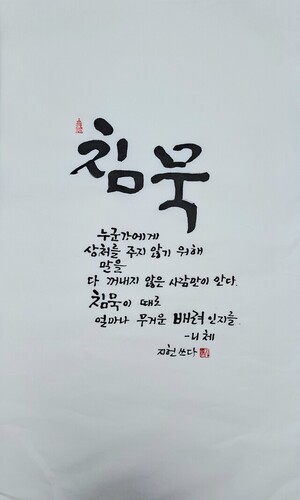 침묵
누군가에게
상처를 주지 않기 위해
말을
다 꺼내지 않은 사람만이 안다.
침묵이 때로
얼마나 무거운 배려인지를.
-니체
지헌 쓰다